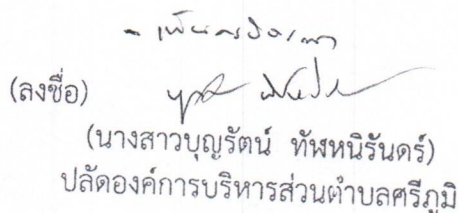 - เพื่อควรพิจารณา
(ลงชื่อ)
(นางสาวบุญรัตน์ ทัพหนิรันดร์)
ปลัดองค์การบริหารส่วนตำบลศรีภูมิ